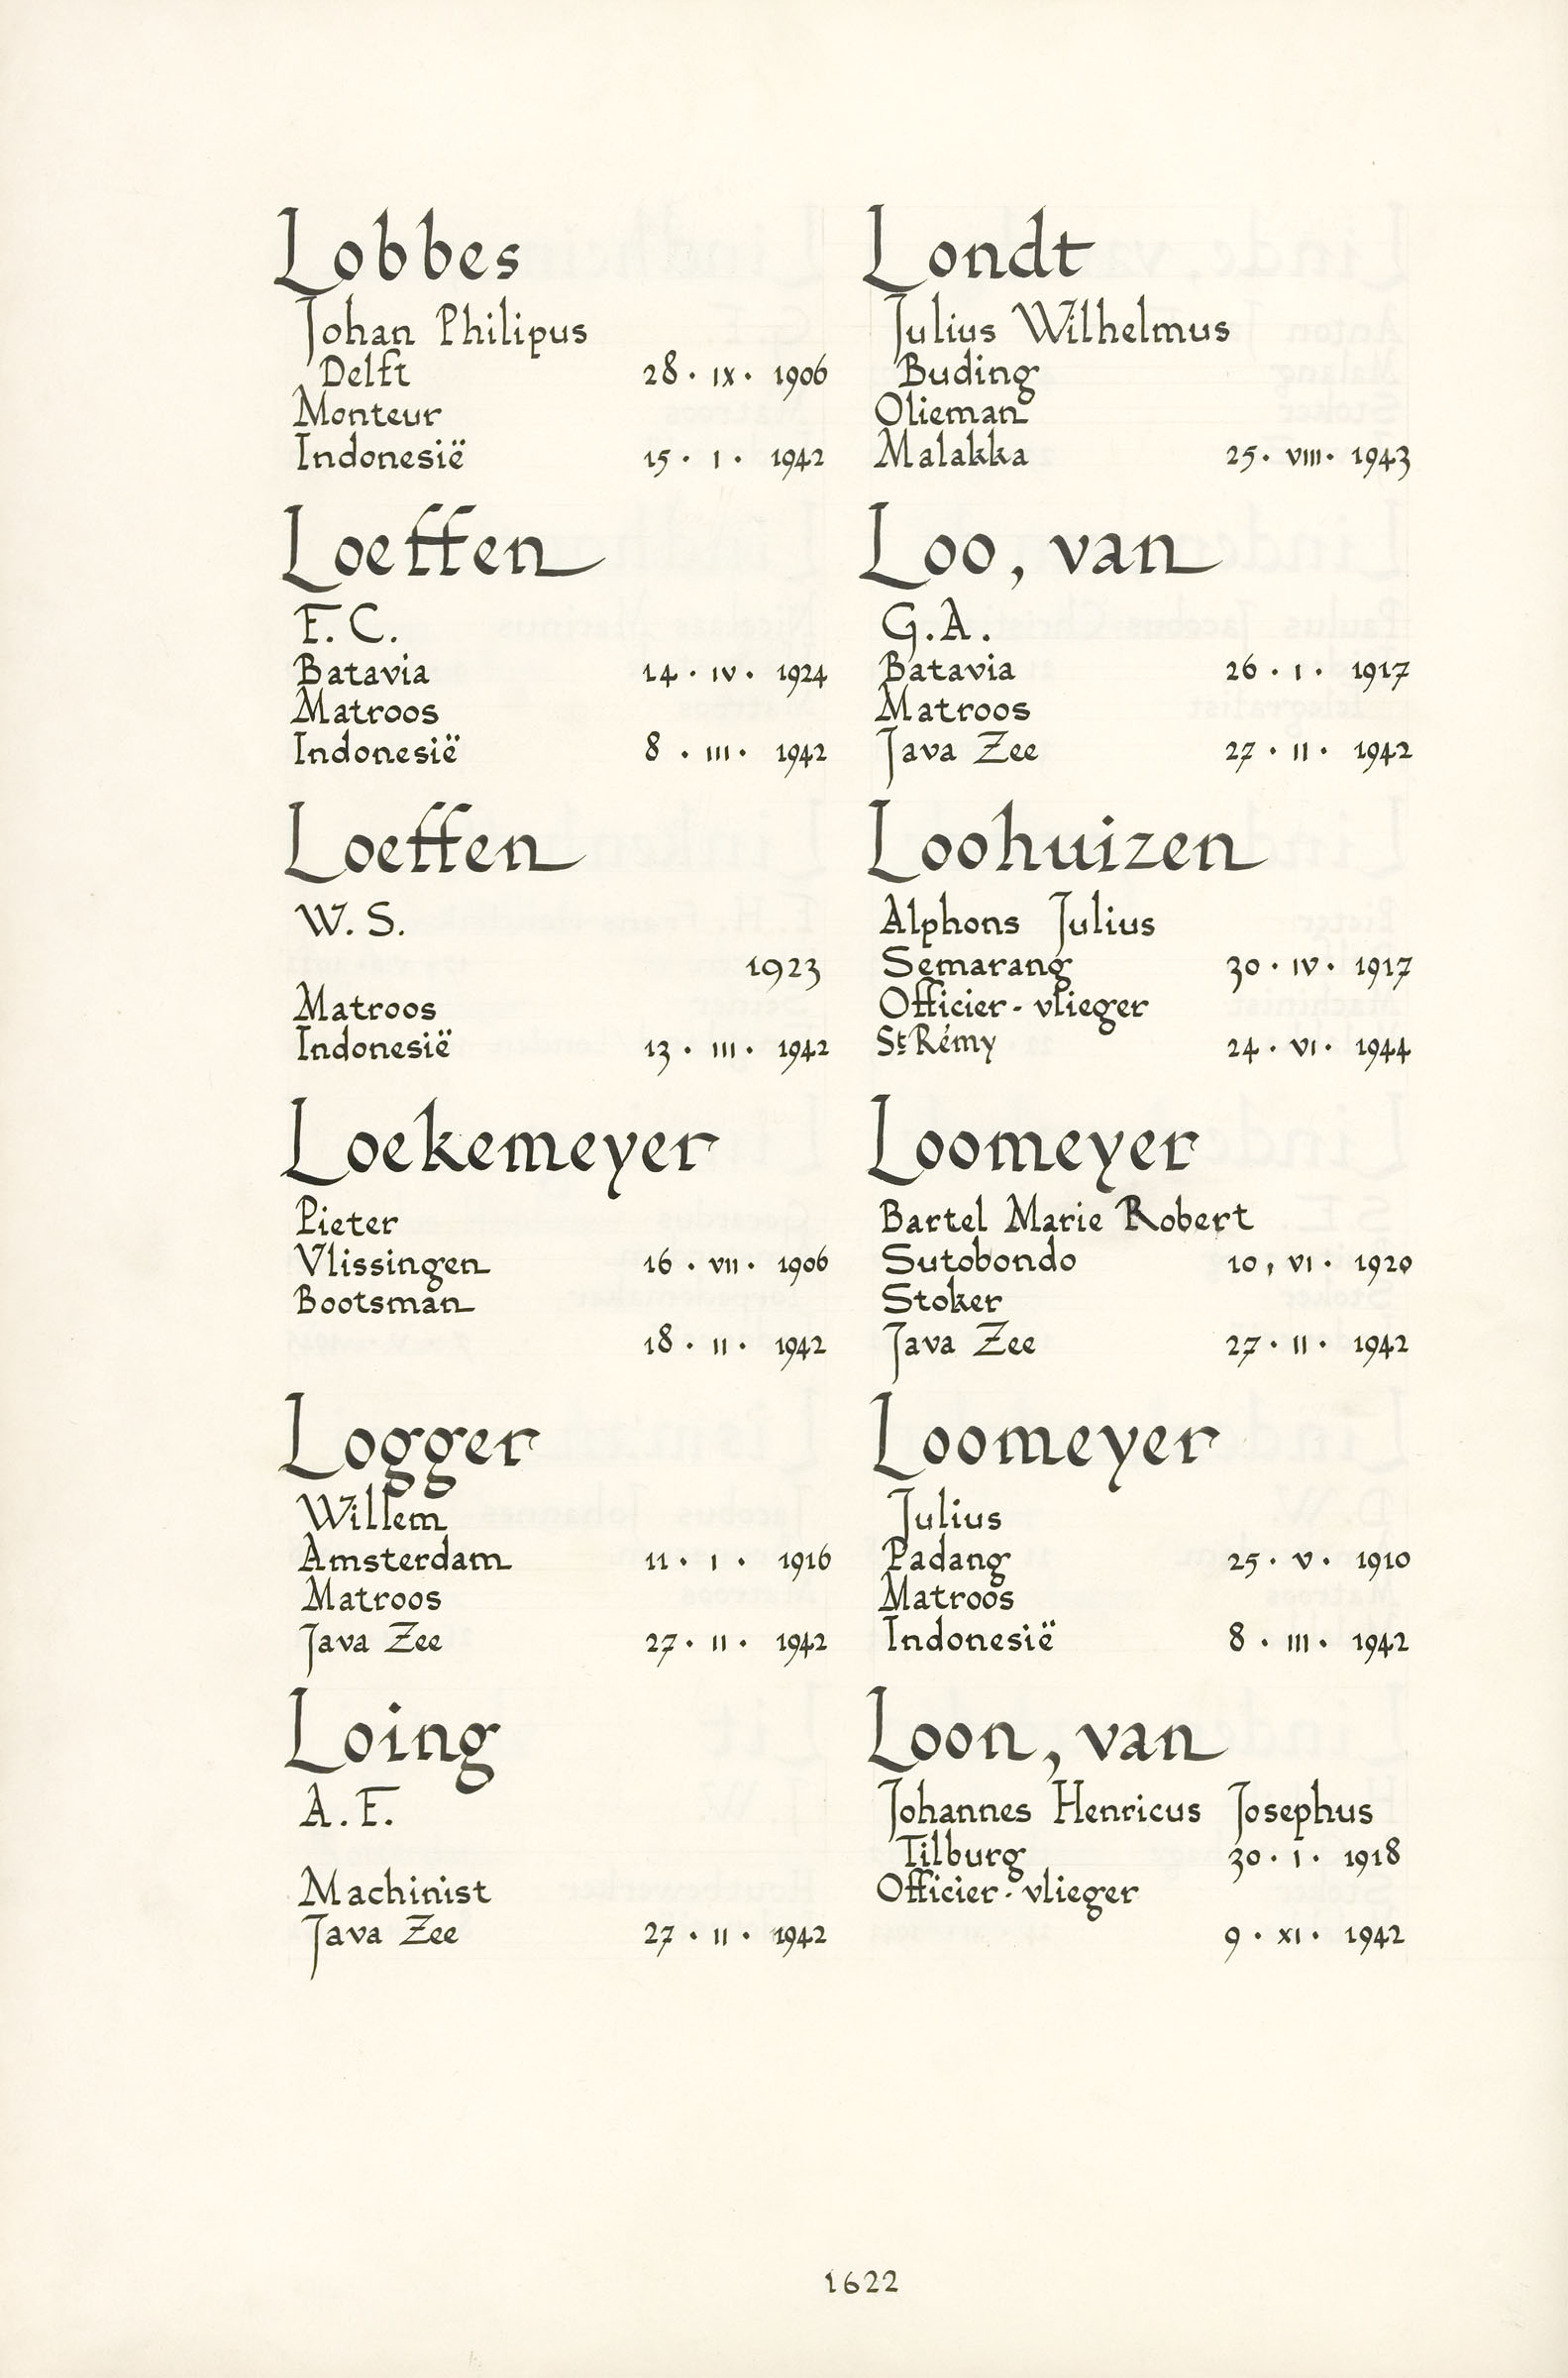 Lobbes
Johan Philipus
Delft 28 · IX · 1906
Monteur
Indonesië 15 · I · 1942
Loeffen
F. C.
Batavia 14 · IV · 1924
Matroos
Indonesië 8 · III · 1942
Loeffen
W. S.
1923
Matroos
Indonesië 13 · III · 1942
Loekemeyer
Pieter
Vlissingen 16 · VII · 1906
Bootsman
18 · II · 1942
Logger
Willem
Amsterdam 11 · I · 1916
Matroos
Java Zee 27 · II · 1942
Loing
A. F.
Machinist
Java Zee 27 · II · 1942
Londt
Julius Wilhelmus
Buding
Olieman
Malakka 25 · VIII · 1943
Loo, van
G. A.
Batavia 26 · I · 1917
Matroos
Java Zee 27 · II · 1942
Loohuizen
Alphons Julius
Semarang 30 · IV · 1917
Officier-vlieger
St Rémy 24 · VI · 1944
Loomeyer
Bartel Marie Robert
Sutobondo 10 , VI · 1920
Stoker
Java Zee 27 · II · 1942
Loomeyer
Julius
Padang 25 · V · 1910
Matroos
Indonesië 8 · III · 1942
Loon, van
Johannes Henricus Josephus
Tilburg 30 · I · 1918
Officier-vlieger
9 · XI · 1942
1622